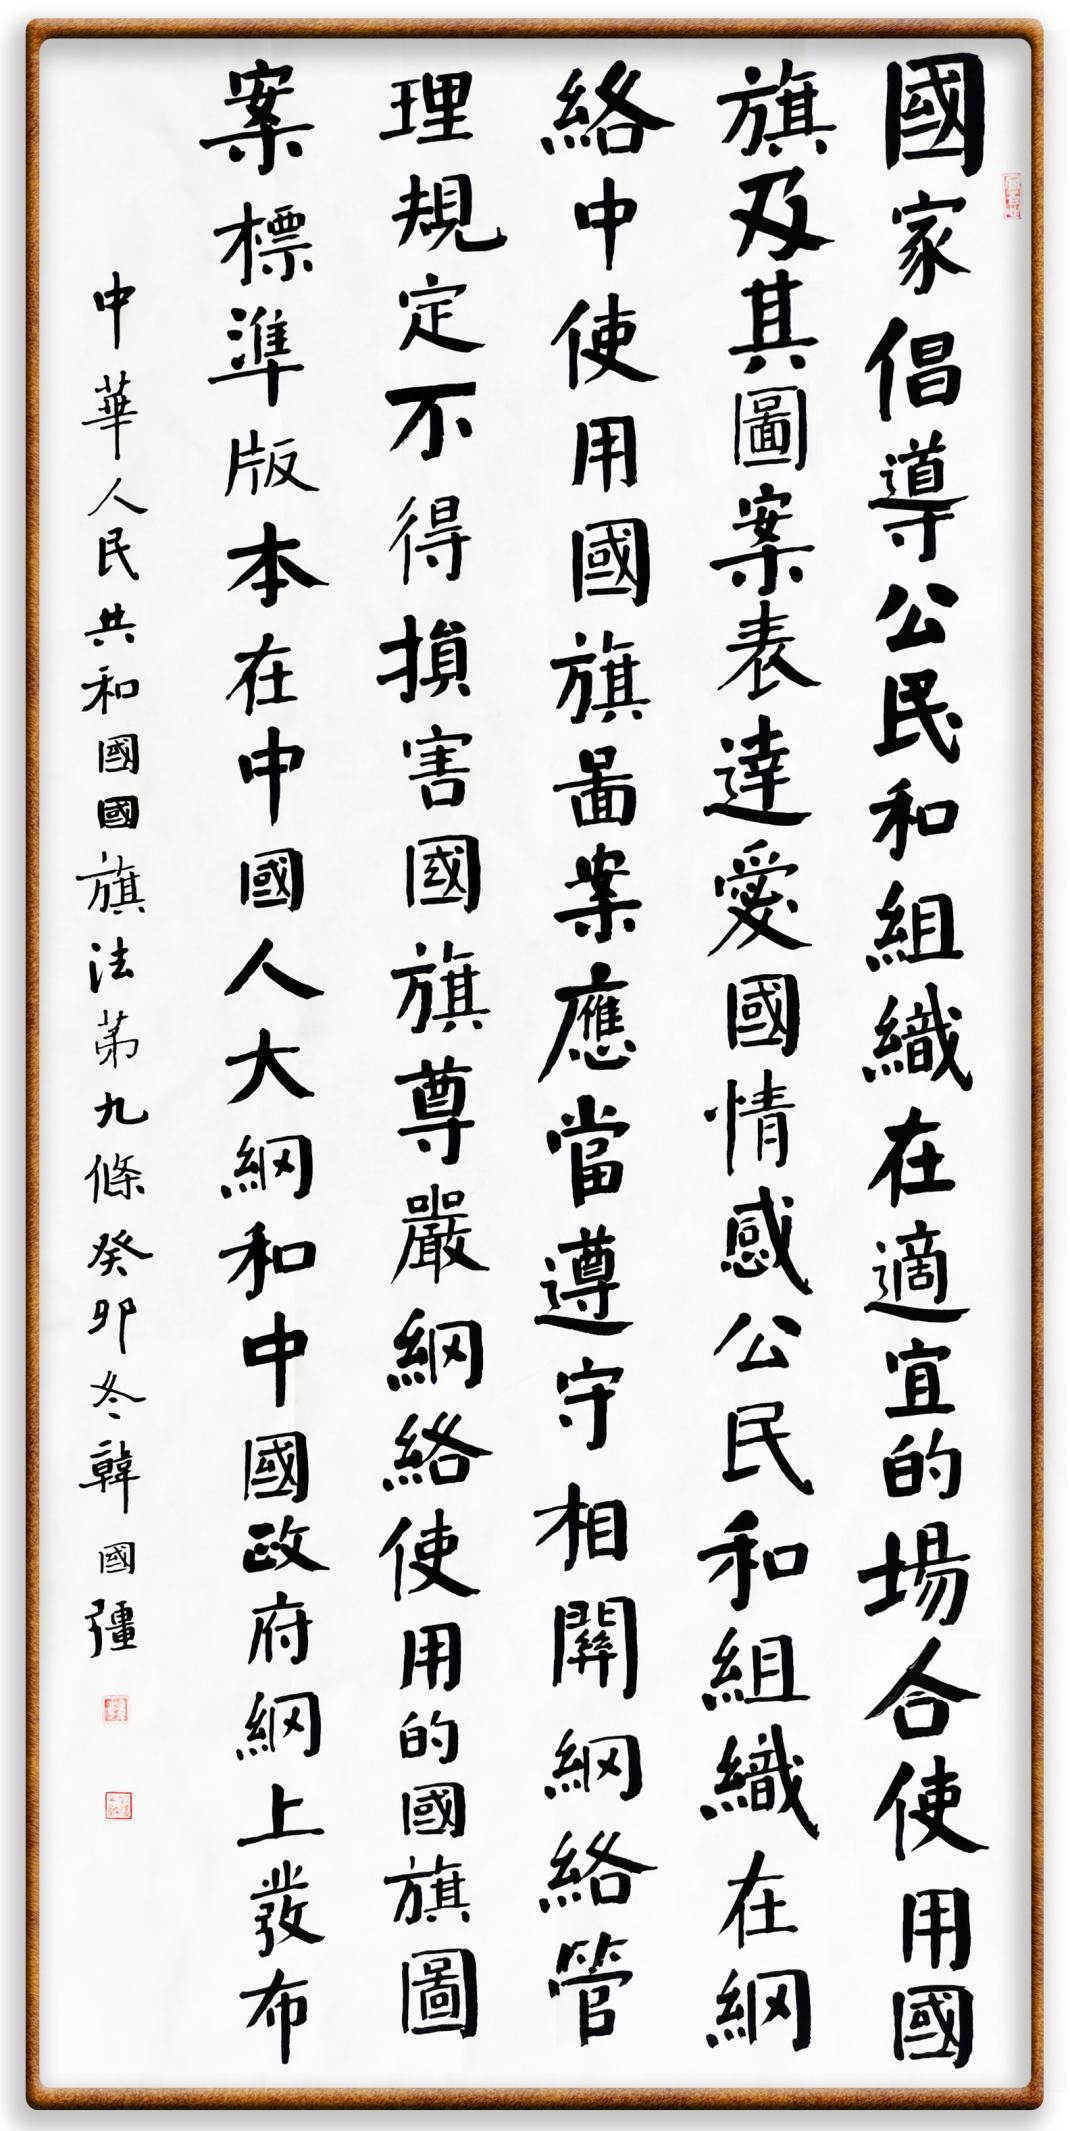 國家倡導公民和組織在適宜的場合使用國
旗及其圖案表達愛國情感公民和組織在網
絡中使用國旗圖案應當遵守相關網絡管
理規定不得損害國旗尊嚴網絡使用的國旗圖
案標準版本在中國人大網和中國政府網上發布
中華人民共和國國旗法第九條癸卯冬韓國彊